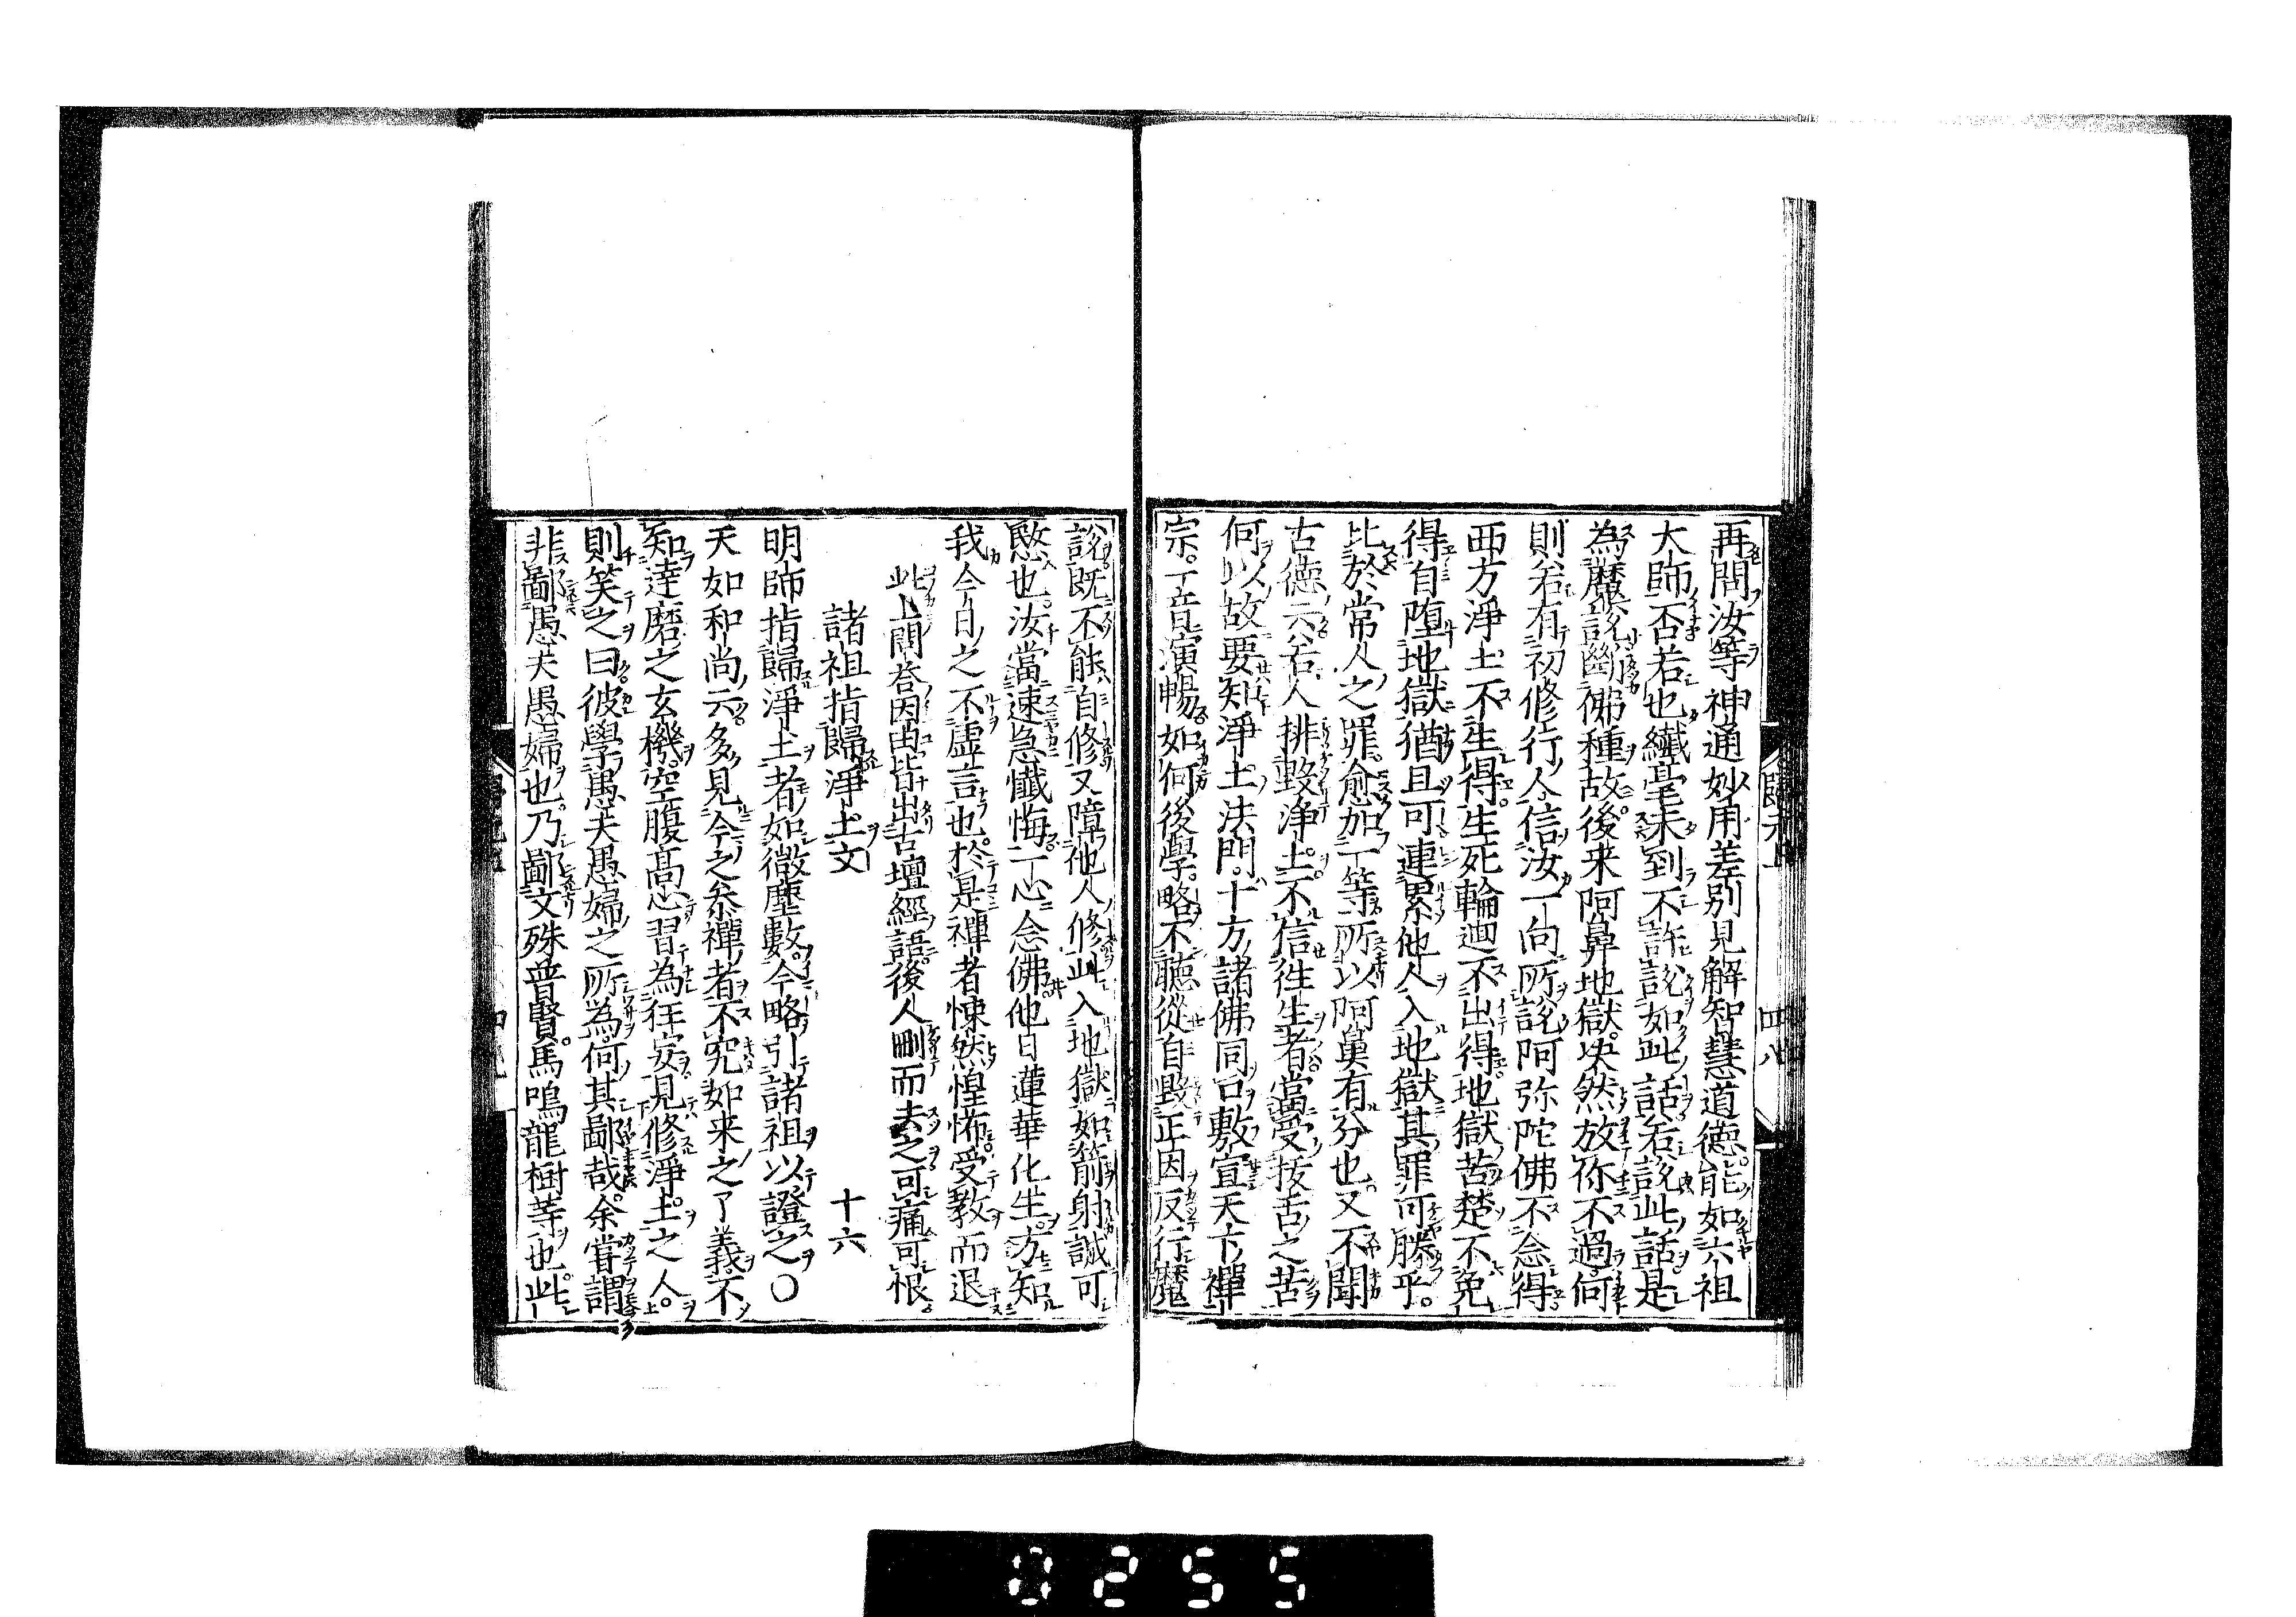 再問汝等神通妙用差別見解智慧道德能如六祖
大師否若也纖毫未到不許説如此話若説此話是
為魔説斷佛種故後来阿鼻地獄决然放你不過何
則若有初修行人信汝一向所説阿弥陀佛不念得
西方淨土不生得生死輪迴不出得地獄苦楚不免
得自墮地獄猶且可連累他人入地獄其罪可勝乎
比於常人之罪愈加一等所以阿鼻有分也又不聞
古德云若人排毀淨土不信徃生者當受拔舌之苦
何以故要知淨土法門十方諸佛同口敷宣天下禪
宗一音演暢如何後學略不聽從自毀正因反行魔
説既不能自修又障他人修此入地獄如箭射誠可
愍也汝當速急懺悔一心念佛他日蓮華化生方知
我今日之不虚言也於是禪者悚然惶怖受教而退
此上問荅因由皆出古壇經語後人刪而去之可痛可恨
諸祖指歸淨土文 十六
明師指歸淨土者如微塵數今略引諸祖以證之〇
天如和尚云多見今之叅禪者不究如来之了義不
知達磨之玄機空腹高心習為狂妄見修淨土之人
則笑之曰彼學愚夫愚婦之所為何其鄙哉余嘗謂
非鄙愚夫愚婦也乃鄙文殊普賢馬鳴龍樹等也此
四八
0255